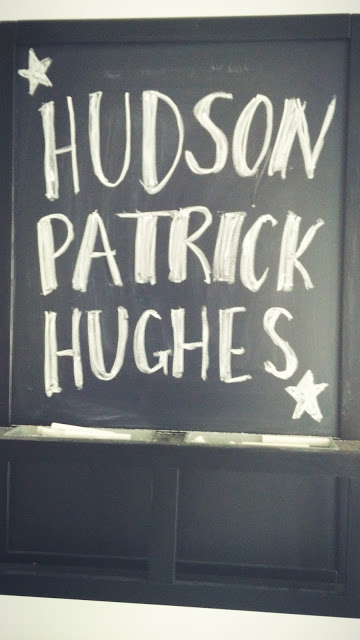 HUDSON
PATRICK
HUGHES